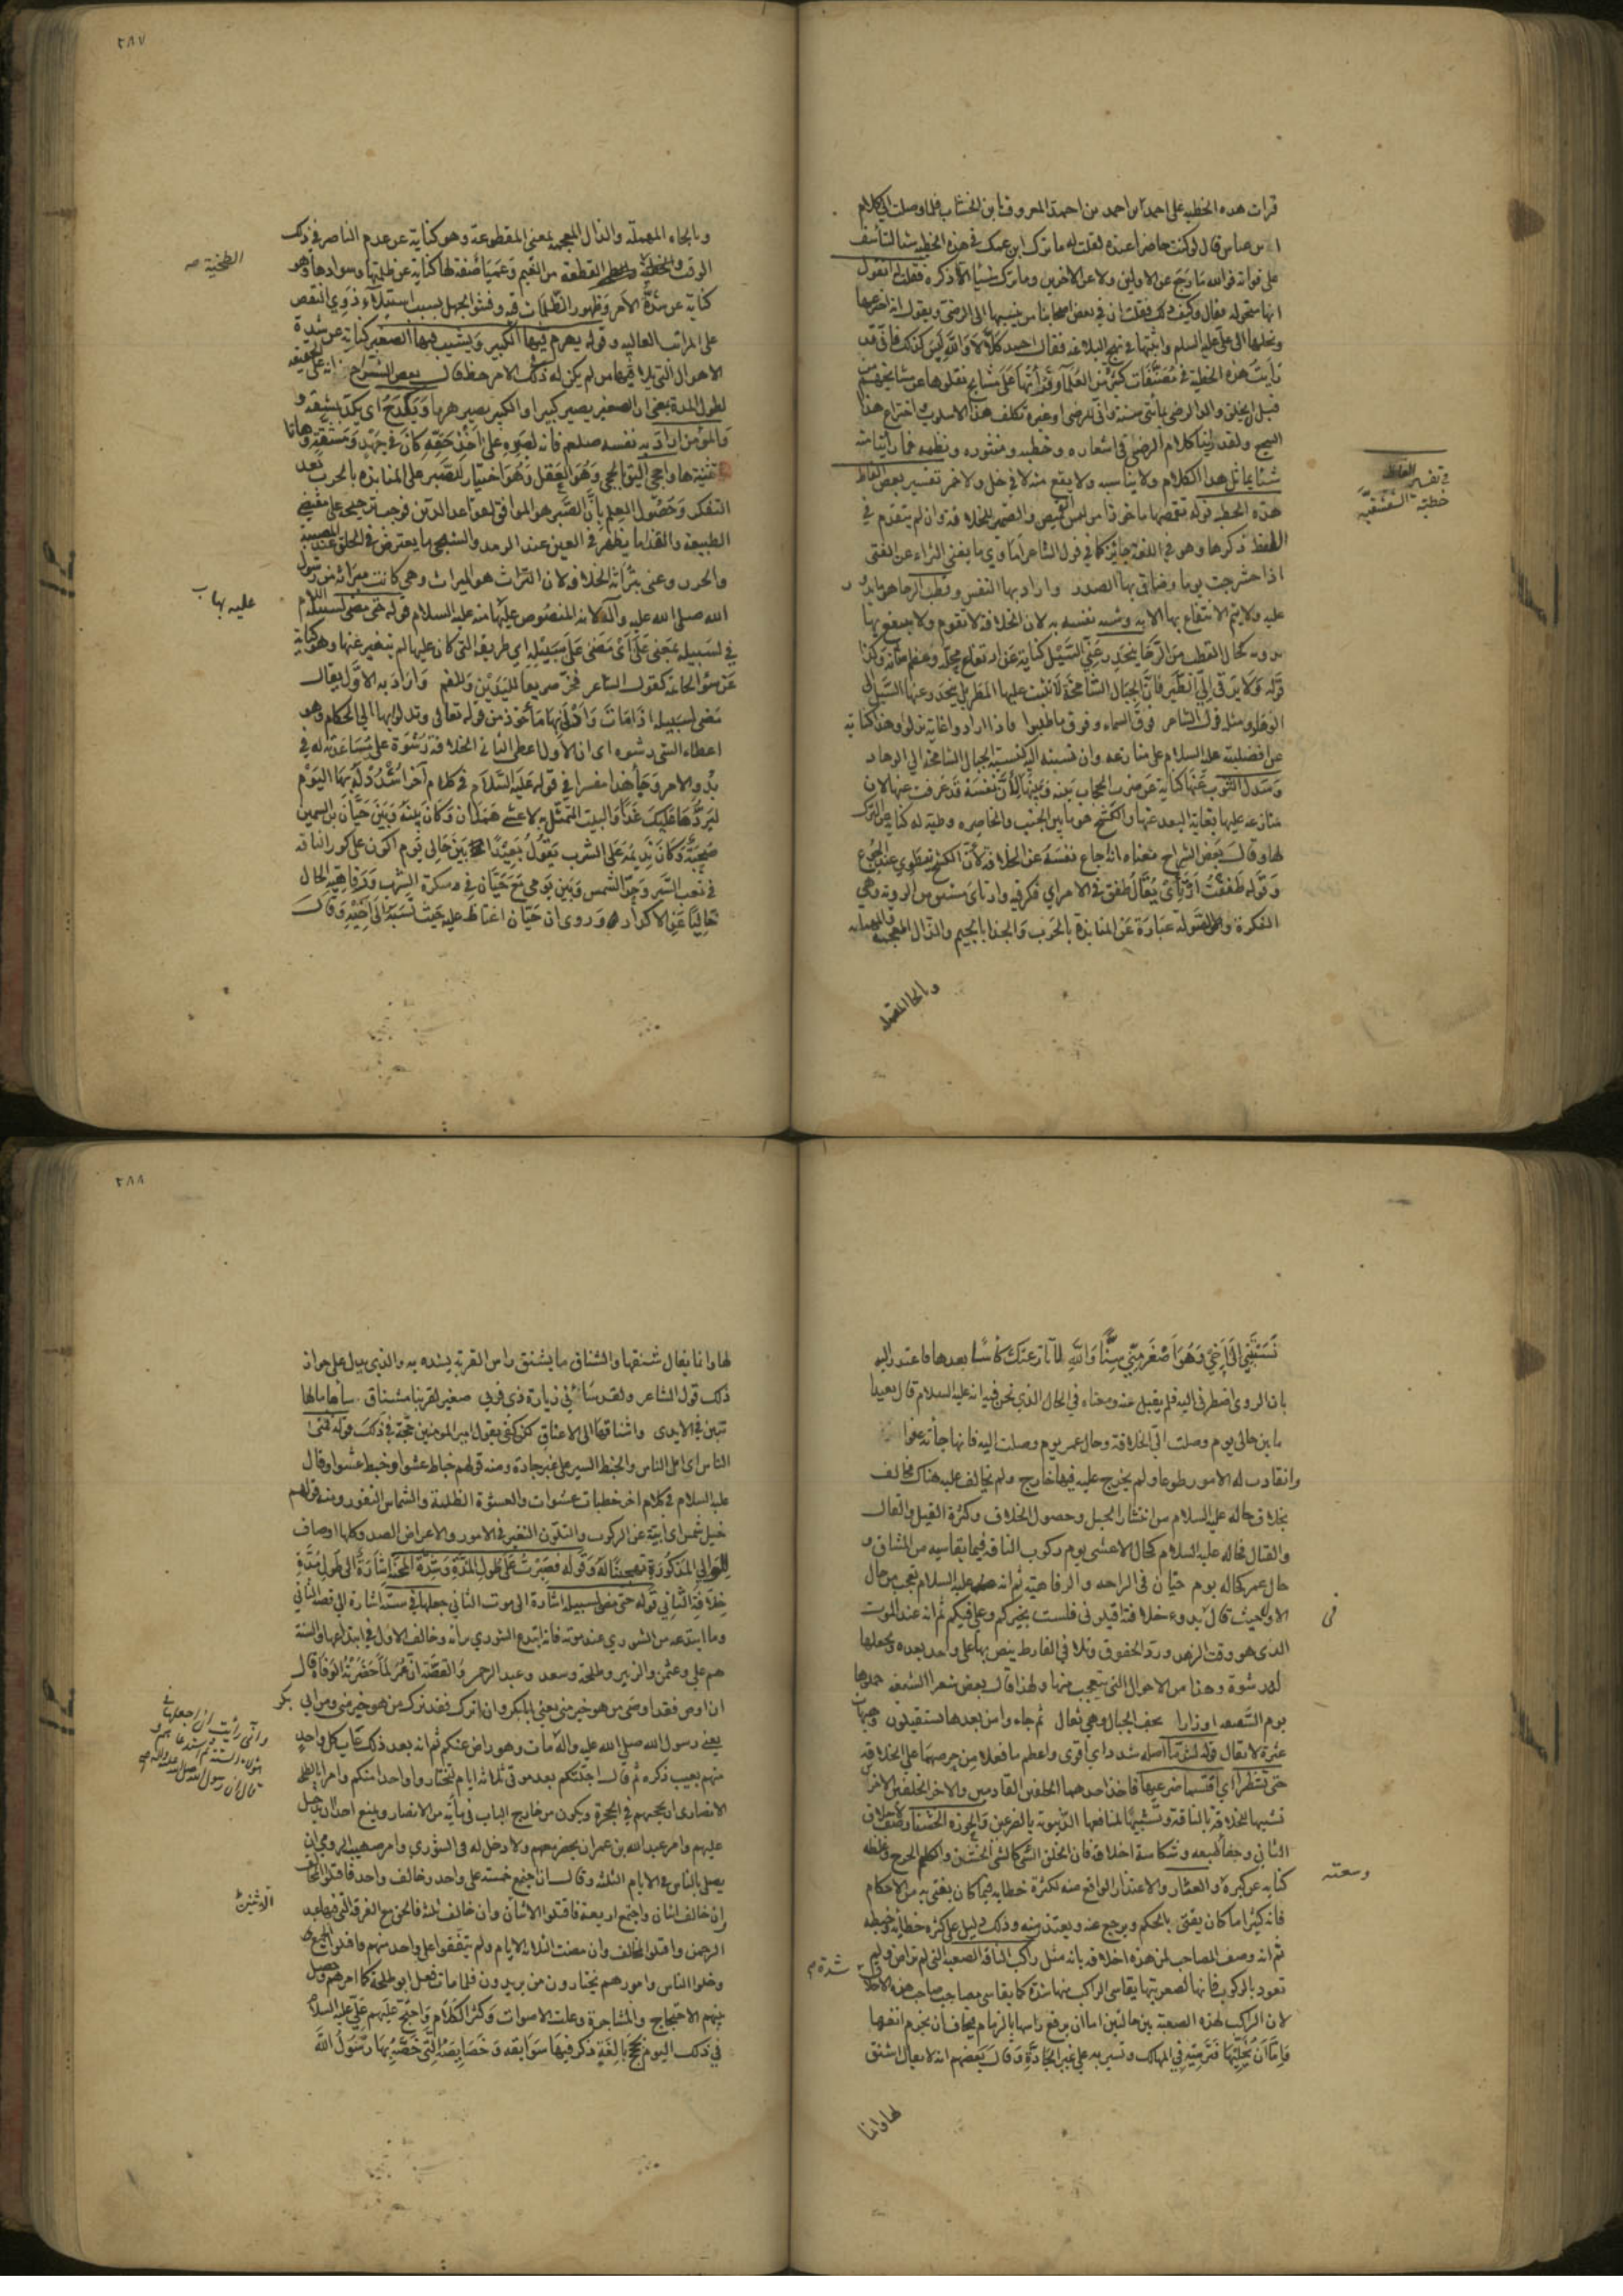 قرات هذه الخطبه على احمد بن احمد بن احمد المعروف بابن الخشاب فلما وصلت الى كلام
ابن عباس قال لو كنت حاضرا عنده لقلت له ما ترك ابن عمك في هذه الخطبه شيئا لتأسف
على فواته فوالله ما رجع عن الاولين ولا عن الاخرين وما ترك شيئا الا ذكره فقلت له اتقول
انها منحوله فقال وكيف ذلك فقلت ان في بعض اصحابنا من ينسبها الى الرضى ويقول انه اخترعها
ونحلها الى على عليه السلام واثبتها في نهج البلاغه فقال احمد كلا لا والله ليس كذلك فانى قد
رأيت هذه الخطبة في مصنفات كثير من العلماء وقرأتها على مشايخ نقلوها عن مشايخهم من
قبل ان يخلق والد الرضى بمأتى سنة وانى للرضى او غيره تكلف هذا الاسلوب واختراع هذا
النهج ولقد رأينا كلام الرضى في اشعاره وخطبه ومنثوره ونظمه فما رأينا منه
شيئا يماثل هذا الكلام ولا يناسبه ولا يقع منه لا في خل ولا خمر تفسير بعض الفاظ
في تفسير الفاظ
خطبة الشقشقيه
هذه الخطبه قوله تقمصها ماخوذا من لبس القميص والضمير للخلافة وان لم يتقدم في
اللفظ ذكرها وهو في اللغة جايز كما في قول الشاعر اماوي ما يغني الثراء عن الفتى
اذا حشرجت يوما وضاق بها الصدر واراد بها النفس وقطب الرحا هو ما يدور
عليه ولا يتم الانتفاع بها الا به وشبه نفسه به لان الخلافة لا تقوم ولا ينتفع بها
بدونه كحال القطب من الرحا ينحدر عنى السيل كناية عن ارتفاع محله وعظم شانه وكذا
قوله ولا يرقى الى الطير فان الجبال الشامخة لا تثبت عليها المطر بل ينحدر عنها السيل الى
الوهاد ومثله قول الشاعر فوق السماء وفوق ما طلبوا فاذا ارادوا غاية نزلوا وهذا كناية
عن افضليته عليه السلام على منازعه وان نسبته اليه كنسبة الجبال الشامخة الى الوهاد
وسدل الثوب عنها كناية عن ضرب الحجاب بينه وبينها لأن نفسه قد عزفت عنها لان
منازعه عليها بغاية البعد عنها والكشح هو ما بين الجنب والخاصره وطيه له كناية عن الترك
لها وقال بعض الشراح معناه انه اجاع نفسه عن الخلافة لأن الكشح تنطوي عند الجوع
وقوله طفقت ارتأى يقال طفق في الامر اي فكر فيه وارتأى مشتق من الروية وهي
الفكرة والصولة عبارة عن المنابذة بالحرب والجذا بالجيم والذال المعجمه والمهمله
وبالحا المهمله
٢٨٧
وبالحاء المهملة والذال المعجمه بمعنى المقطوعة وهو كناية عن عدم الناصر في ذلك
الوقت والطخية القطعة من الغيم وعمياء صفة لها كناية عن ظلمتها وسوادها وهو
الطخية صه
كناية عن شدة الامر وظهور الظلمات فيه وفشو الجهل بسبب استيلاء ذوي النقص
على المراتب العالية وقوله يهرم فيها الكبير ويشيب فيها الصغير كناية عن شدة
الاهوال التي يلاقيها من لم يكن له في ذلك الامر حظ قال بعض الشراح انه على الحقيقة
لطول المدة يعني ان الصغير يصير كبيرا والكبير يصير هرما ويكدح اى يكد بمشقة و
والمؤمن اراد به نفسه صلعم فانه لصبره على اخذ حقه كان في جهد ومشقة وهاتا
تثنية ها واحجى اليق بالحجى وهو العقل وهو اختيار للصبر على المنابذة بالحرب بعد
التفكر وحصول العلم بأن الصبر هو الموافق لقواعد الدين فوجب ترجيحه على مقتضى
الطبيعة والقذا ما يظهر في العين عند الرمد والشجى ما يعترض في الحلق عند المصيبة
والحزن وعنى بتراثه الخلافة لان التراث هو الميراث وهى كانت ميراثه من رسول
عليه بهاب
الله صلى الله عليه وآله لانه المنصوص عليها منه عليه السلام قوله حتى مضى لسبيله اللام
في لسبيله بمعنى على اى مضى على سبيله اي طريقه التي كان عليها لم يتغير عنها وهو كناية
عن سوء الخاتمة كقول الشاعر فخر صريعا لليدين وللفم واراد به الاول يقال
مضى لسبيله اذا مات وادلى بها مأخوذ من قوله تعالى وتدلوا بها الى الحكام وهو
اعطاء الشىء رشوه اى ان الاول اعطى الثاني الخلافة رشوة على مساعدته له في
بدو الامر وجأ هذا مفسرا في قوله عليه السلام في كلام آخر اشدد له بها اليوم
ليردها عليك غدا والبيت المتمثل به لاعشى همدان وكان بينه وبين حيان بن السمين
صحبة وكان نديمه على الشرب يقول بعيدا بين حالى يوم اكون على كور الناقه
في تعب السير وحر الشمس وبين يومى مع حيان في سكرة الشرب ورفاهية الحال
خاليا عن الاكدار وروى ان حيان اغتاظ عليه حيث نسبه الى اخيه وقال
نسبتنى الى اخى وهو اصغر منى سنا والله لا نازعتك كأسا بعدها فاعتذر اليه
بان الروى اضطرنى اليه فلم يقبل عنه ومعناه في الحال الذي نحن فيه انه عليه السلام قال بعيدا
ما بين حالى يوم وصلت الى الخلافة وحال عمر يوم وصلت اليه فانها جأته عفوا
وانقادت له الامور طوعا ولم يخرج عليه فيها خارج ولم يخالف عليه هناك مخالف
بخلاف حاله عليه السلام من انتشار الحبل وحصول الخلاف وكثرة القيل والقال
والقتال فحاله عليه السلام كحال الاعشى يوم ركوب الناقة فيما يقاسيه من المشاق و
حال عمر كحاله يوم حيان في الراحه والرفاهية ثم انه عليه السلام تعجب من حال
الاول حيث قال في بدوء خلافته اقيلونى فلست بخيركم وعلى فيكم ثم انه عند الموت
فى
الذي هو وقت الزهد ورد الحقوق وتلافي الفارط ينص بها على واحد بعده ويجعلها
له رشوة وهذا من الاحوال التي يتعجب منها ولهذا قال بعض شعرا الشيعه حملوها
يوم السقيفه اوزارا تخف الجبال وهى ثقال ثم جاءوا من بعدها يستقيلون وهيهات
عثرة لا تقال قوله لشد ما اصله شدد اي أقوى واعظم ما فعلا من حرصهما على الخلافة
حتى تشطرا اي اقتسما ضرعيها فاخذ احدهما الخلفين القادمين والاخر الخلفين الاخر
تشبيها للخلافة بالناقة وتشبيها لمنافعها الدنيوية بالضرعين والحوزة الخشناء وصف لاخلاق
الثاني وجفا طبعه وشكاسة اخلاقه فان الخلق الشى كالشى الخشن والكلم الجرح وغلظه
وسعته
كناية عن كبره والعثار والاعتذار الواقع منه لكثرة خطايه فيما كان يفتى به من الاحكام
فانه كثيرا ما كان يفتى بالحكم ويرجع عنه ويعتذر منه وذلك دليل على كثره خطايه وخبطه
ثم انه وصف المصاحب لمن هذه اخلاقه بانه مثل راكب الناقة الصعبه التي لم ترض ولم
شدة م
تعود بالركوب فانها لصعوبتها يقاسى الراكب منها شدة كما يقاسى مصاحب صاحب هذه الاخلا
لان الراكب لهذه الصعبة بين حالتين اما ان يرفع راسها بالزمام فيخاف ان يخرم انفها
واما ان يخليها فترميه في المهالك وتسير به على غير الجادة وقال بعضهم انه لا يقال اشنق
لها وانما
٢٨٨
لها وانما يقال شنقها والشناق ما يشنق راس القربة يشده به والذي يدل على جواز
ذلك قول الشاعر في زيارة ذي قربي صغير لقربنا مشتاق ساها مالها
تبين في الايدى واشناقها الى الاعناق لكن كفى بقول امير المومنين حجة في ذلك قوله فمنى
الناس اى ابلى الناس والخبط السير على غير جادة ومنه قولهم خباط عشوا وخبط عشوا وقال
عليه السلام في كلام اخر خطبات عشوات والعشوة الظلمة والشماس النفور ومنه قولهم
خيل شمس اى ابية عن الركوب والتلون التغير في الامور والاعراض الصد وكلها اوصاف
للوالي المذكورة وقوله فصبرت على طول المدة وشدة المحنة اشارة الى طول مدة
خلافة الثاني قوله حتى مضى لسبيله اشارة الى موت الثاني جعلها في ستة اشارة الى قصة الثاني
وما ابتدعه من الشوري عند موته فانه ابتدع الشوري برأيه وخالف الاول في ابتداعها والستة
هم على وعثمن والزبير وطلحة وسعد وعبد الرحمن والقصة أن عمر لما حضرته الوفاة قال
ان اوص فقد اوصى من هو خير منى يعني ابا بكر وان اترك فقد ترك من هو خير منى ومن ابي بكر
يعني رسول الله صلى الله عليه وآله مات وهو راض عنكم ثم انه بعد ذلك عاب كل واحد
وانى رأيت ان اجعلها في
هؤلاء الستة ثم استدعاهم و
قال ان رسول الله صلى الله عليه واله صه
منهم بعيب ذكره ثم قال اجلتكم بعد موتى ثلاثة ايام لتختاروا واحدا منكم وامر ابا طلحة
الانصارى ان يجمعهم في الحجرة ويكون من خارج الباب فى مأية من الانصار ويمنع احدا ان يدخل
عليهم وامر عبد الله بن عمر ان يحضر معهم ولا دخل له في الشوري وامر صهيب الرومي ان
يصلى بالناس في الايام الثلثه وقال ان اجتمع خمسة على واحد وخالف واحد فاقتلوا المخالف
ان خالف اثنان واجتمع اربعة فاقتلوا الاثنان وان خالف ثلثة فالحق مع الفرقة التي فيها عبد
الرحمن واقتلوا المخالف وان مضت الثلاثة الايام ولم يتفقوا على واحد منهم فاقتلوا الجميع
وخلوا الناس وامورهم يختارون من يريدون فلما مات فعل ابو طلحة كما امرهم وحصل
بينهم الاحتجاج والمشاجرة وعلت الاصوات وكثر الكلام واحتج عليهم على عليه السلام
في ذلك اليوم بحجج بالغة ذكر فيها سوابقه وخصايصه التي خصه بها رسول الله